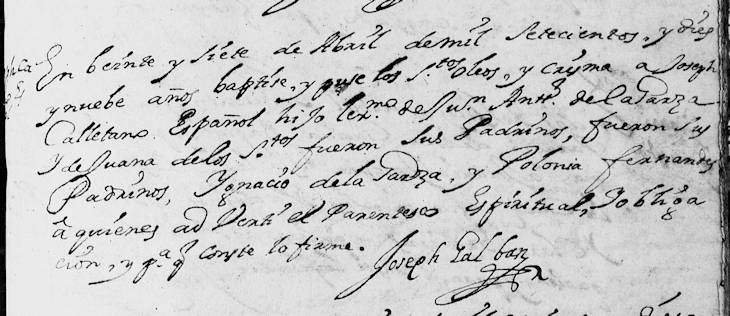 En beinte y siete de Abril de mil setecientos, y diez
y nuebe años baptise, y puse los S.tos Oleos, y Crisma a Joseph
Calletano Español hijo lex.mo de Ju.n Ant.o de la Garza
y de Juana de los S.tos fueron sus Padrinos, fueron sus
Padrinos, Ygnacio de la Garza, y Polonia fernandes
â quienes adverti el Parentesco Espiritual, y obliga
ción, y p.a q conste lo firme.
Joseph Galban